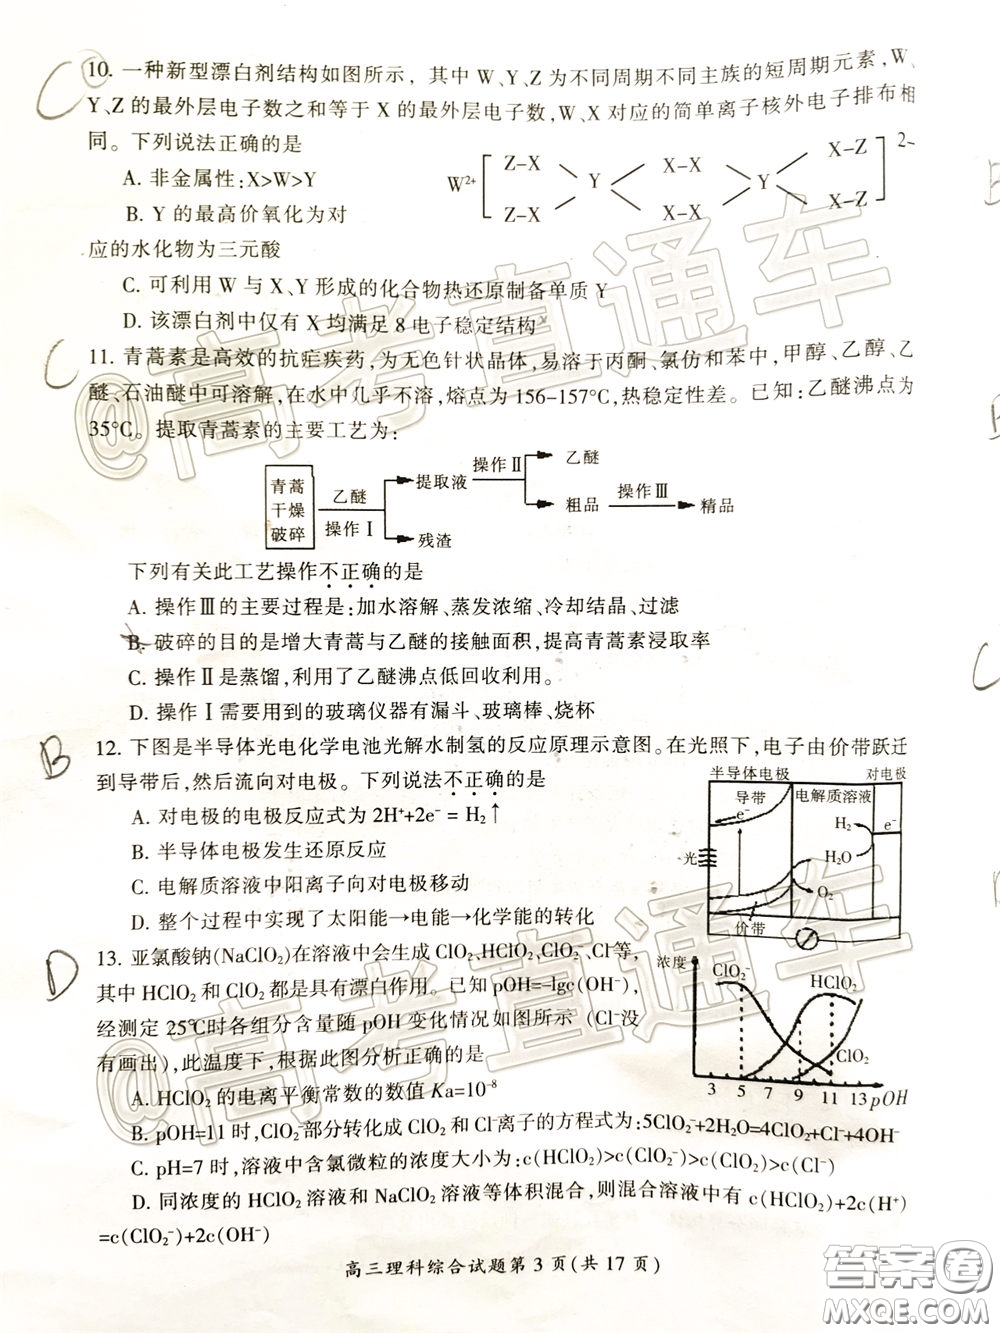 10. 一种新型漂白剂结构如图所示，其中 W、Y、Z 为不同周期不同主族的短周期元素，W、
Y、Z 的最外层电子数之和等于 X 的最外层电子数，W、X 对应的简单离子核外电子排布相
同。下列说法正确的是
A. 非金属性：X>W>Y
B. Y 的最高价氧化为对
应的水化物为三元酸
W²⁺ [ Z-X Z-X Y X-X X-X Y X-Z X-Z ] 2-
C. 可利用 W 与 X、Y 形成的化合物热还原制备单质 Y
D. 该漂白剂中仅有 X 均满足 8 电子稳定结构
11. 青蒿素是高效的抗疟疾药，为无色针状晶体，易溶于丙酮、氯仿和苯中，甲醇、乙醇、乙
醚、石油醚中可溶解，在水中几乎不溶，熔点为 156-157°C，热稳定性差。已知：乙醚沸点为
35°C。提取青蒿素的主要工艺为：
青蒿
干燥
破碎
乙醚
操作Ⅰ
提取液
残渣
操作Ⅱ
乙醚
粗品
操作Ⅲ
精品
下列有关此工艺操作不正确的是
A. 操作Ⅲ的主要过程是：加水溶解、蒸发浓缩、冷却结晶、过滤
B. 破碎的目的是增大青蒿与乙醚的接触面积，提高青蒿素浸取率
C. 操作Ⅱ是蒸馏，利用了乙醚沸点低回收利用。
D. 操作Ⅰ需要用到的玻璃仪器有漏斗、玻璃棒、烧杯
B
12. 下图是半导体光电化学电池光解水制氢的反应原理示意图。在光照下，电子由价带跃迁
到导带后，然后流向对电极。下列说法不正确的是
A. 对电极的电极反应式为 2H⁺+2e⁻ = H₂↑
B. 半导体电极发生还原反应
C. 电解质溶液中阳离子向对电极移动
D. 整个过程中实现了太阳能→电能→化学能的转化
半导体电极
对电极
导带
电解质溶液
e⁻
H₂
e⁻
光
H₂O
O₂
价带
D
13. 亚氯酸钠(NaClO₂)在溶液中会生成 ClO₂、HClO₂、ClO₂⁻、Cl⁻等，
其中 HClO₂ 和 ClO₂ 都是具有漂白作用。已知 pOH=-lgc(OH⁻)，
经测定 25℃时各组分含量随 pOH 变化情况如图所示（Cl⁻没
有画出），此温度下，根据此图分析正确的是
浓度
ClO₂⁻
HClO₂
ClO₂
3 5 7 9 11 13 pOH
A. HClO₂ 的电离平衡常数的数值 Ka=10⁻⁸
B. pOH=11 时，ClO₂⁻部分转化成 ClO₂ 和 Cl⁻离子的方程式为：5ClO₂⁻+2H₂O=4ClO₂+Cl⁻+4OH⁻
C. pH=7 时，溶液中含氯微粒的浓度大小为：c(HClO₂)>c(ClO₂⁻)>c(ClO₂)>c(Cl⁻)
D. 同浓度的 HClO₂ 溶液和 NaClO₂ 溶液等体积混合，则混合溶液中有 c(HClO₂)+2c(H⁺)
=c(ClO₂⁻)+2c(OH⁻)
高三理科综合试题第 3 页(共 17 页)
@高考直通车
@高考直通车
答案圈
MXQE.COM